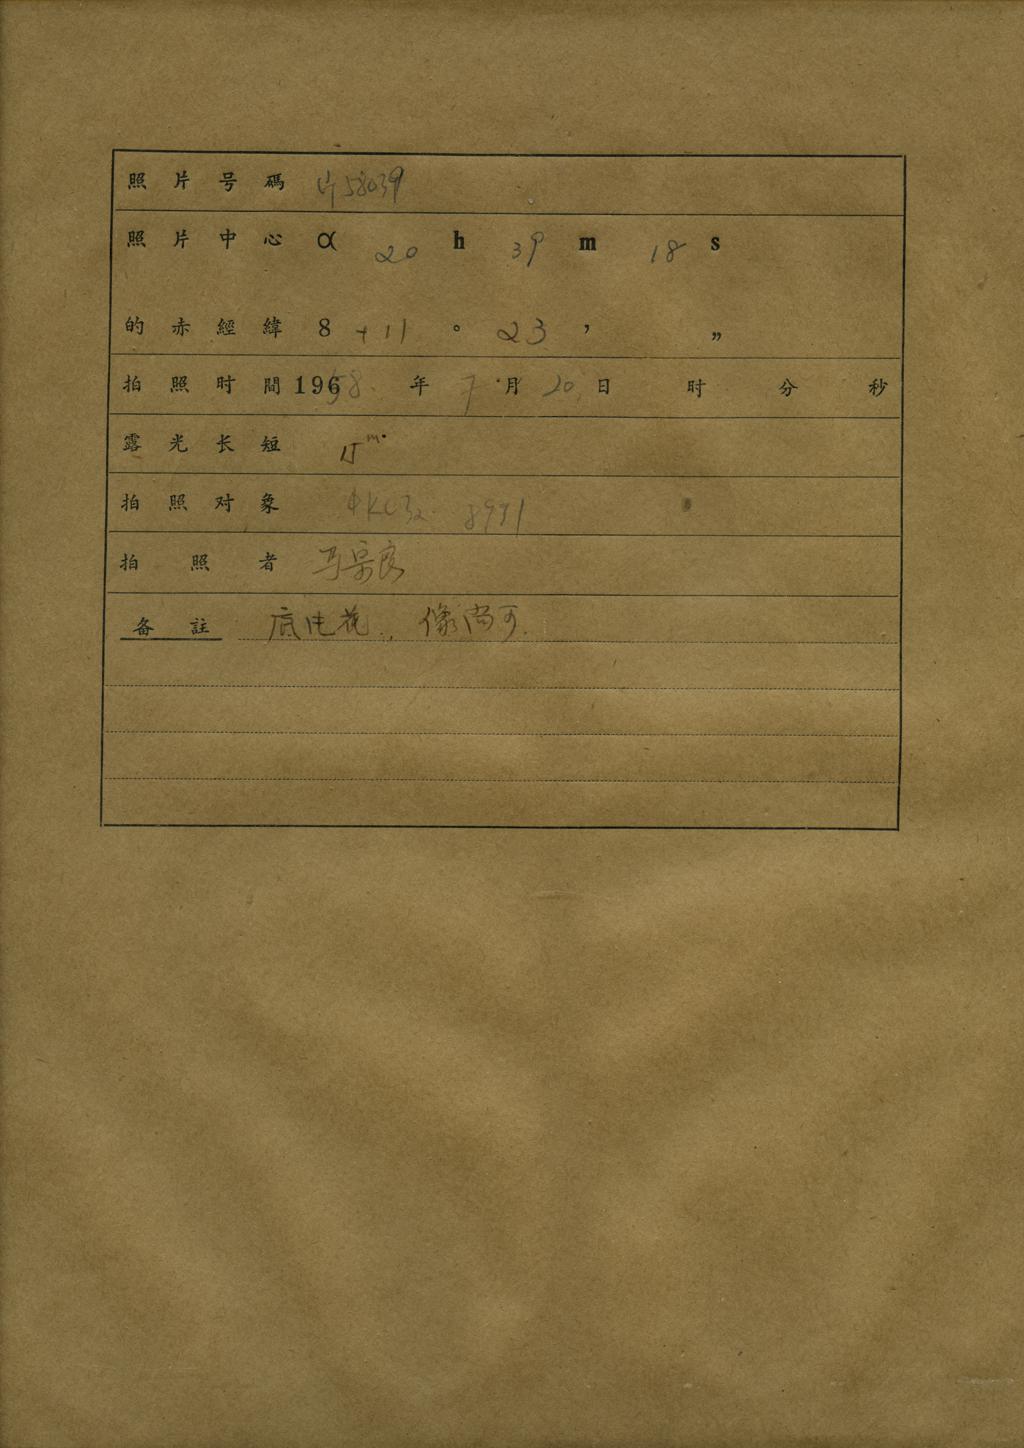 照片号碼 片58039
照片中心 α 20 h 39 m 18 s
的赤經緯 8 +11 ° 23 ′ ″
拍照时間 1958 年 7 月 20 日 时 分 秒
露光长短 15m
拍照对象 8991
拍照者 马宗良
备註 底片花, 像尚可.